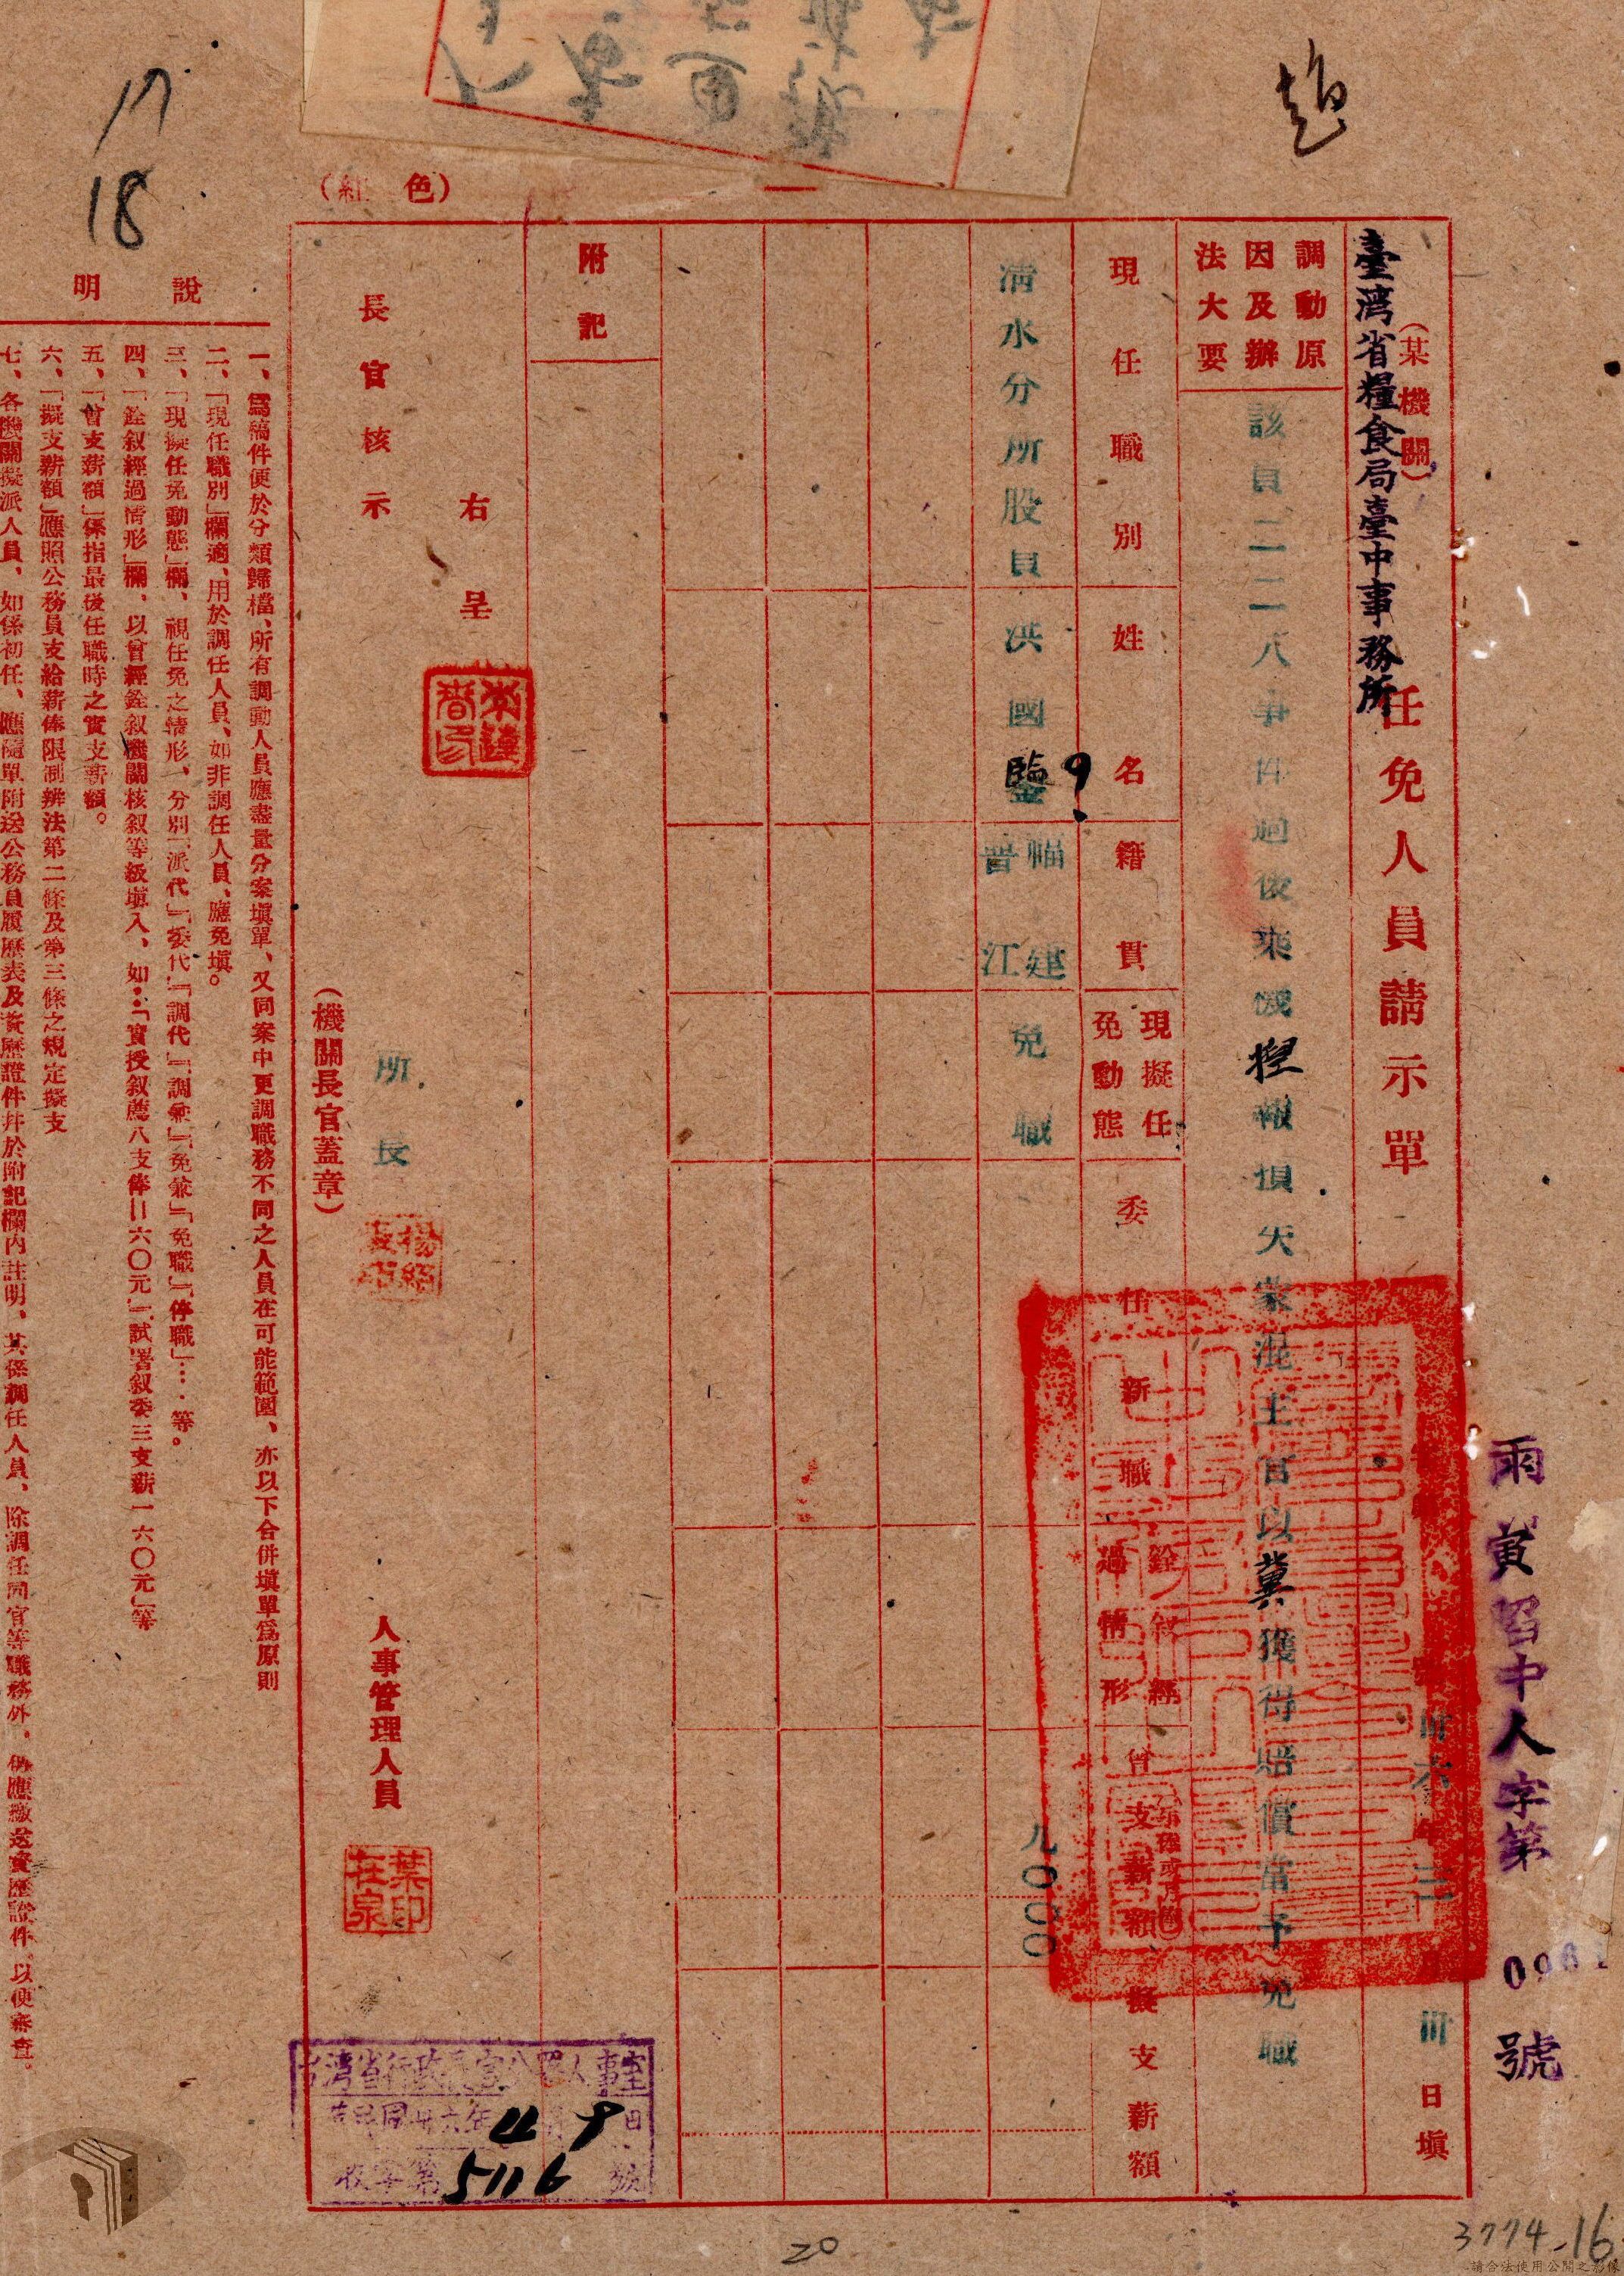 趙
雨寅智中人字第 0961 號
(某機關)
臺灣省糧食局臺中事務所
任免人員請示單
卅六年三月卅日填
調動原因及辦法大要
該員二二八事件過後乘機捏報損失蒙混主官以冀獲得賠償當予免職
現任職別
姓名
籍貫
現擬任免動態
委任新職
銓敘經過情形
曾支薪額
擬支薪額
清水分所股員
洪國鑒
臨?
福建
晋江
免職
九〇〇〇
附記
右呈
長官核示
所長
楊
(機關長官蓋章)
人事管理人員
葉在泉印
(紅色)
說明
一、爲稿件便於分類歸檔、所有調動人員應盡量分案塡單、又同案中更調職務不同之人員在可能範圍、亦以下合併塡單爲原則
二、「現任職別」欄適、用於調任人員、如非調任人員、應免塡。
三、「現擬任免動態」欄、視任免之情形、分別「派代」「委代」「調代」「調兼」「免兼」「免職」「停職」…等。
四、「銓叙經過情形」欄、以曾經銓叙機關核叙等級塡入、如:「實授叙薦八支俸二六〇元」「試署叙委三支薪一六〇元」等
五、「曾支薪額」係指最後任職時之實支薪額。
六、「擬支薪額」應照公務員支給薪俸限制辨法第二條及第三條之規定擬支
七、各機關擬派人員、如係初任、應隨單附送公務員履歷表及資歷證件幷於附記欄內註明、其係調任人員、除調任同官等職務外。仍應繳送資歷證件。以便審查。
台灣省行政長官公署人事室
中華民國卅六年 4月9日
收字第 5116 號
17
18
20
3774-16
請合法使用公開之影像